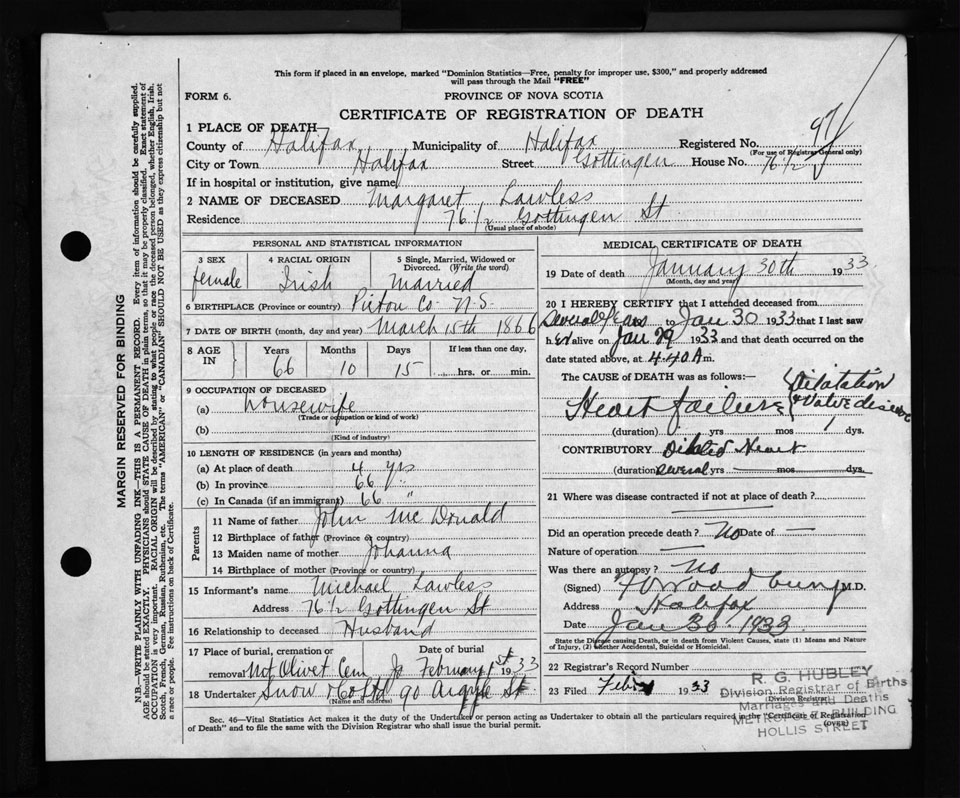 This form if placed in an envelope, marked "Dominion Statistics—Free, penalty for improper use, $300," and properly addressed
will pass through the Mail "FREE"
FORM 6.
PROVINCE OF NOVA SCOTIA
CERTIFICATE OF REGISTRATION OF DEATH
1 PLACE OF DEATH—
County of Halifax Municipality of Halifax Registered No.
(For use of Registrar General only)
City or Town Halifax Street Gottingen House No. 76 1/2
If in hospital or institution, give name
2 NAME OF DECEASED Margaret Lawless
Residence 76 1/2 Gottingen St
(Usual place of abode)
PERSONAL AND STATISTICAL INFORMATION
3 SEX 4 RACIAL ORIGIN 5 Single, Married, Widowed or
Divorced. (Write the word)
female Irish Married
6 BIRTHPLACE (Province or country) Pictou Co N.S.
7 DATE OF BIRTH (month, day and year) March 15th 1866
8 AGE IN Years Months Days If less than one day,
66 10 15 hrs. or min.
9 OCCUPATION OF DECEASED
(a) housewife
(Trade or occupation or kind of work)
(b)
(Kind of industry)
10 LENGTH OF RESIDENCE (in years and months)
(a) At place of death 4 yrs
(b) In province 66 "
(c) In Canada (if an immigrant) 66 "
Parents
11 Name of father John Mc Donald
12 Birthplace of father (Province or country)
13 Maiden name of mother Johanna
14 Birthplace of mother (Province or country)
15 Informant's name Michael Lawless
Address 76 1/2 Gottingen St
16 Relationship to deceased Husband
17 Place of burial, cremation or Date of burial
removal Mt Olivet Cem February 1st 1933
18 Undertaker Snow & Co Ltd 90 Argyle St
(Name and address)
MEDICAL CERTIFICATE OF DEATH
19 Date of death January 30th 1933
(Month, day and year)
20 I HEREBY CERTIFY that I attended deceased from
Several Years to Jan 30 1933 that I last saw
h er alive on Jan 29 1933 and that death occurred on the
date stated above, at 4.40 A m.
The CAUSE OF DEATH was as follows:—
Heart failure Dilatation
& Valve disease
(duration) yrs mos 1 dys.
CONTRIBUTORY Dilated Heart
(duration) several yrs — mos — dys.
21 Where was disease contracted if not at place of death?
Did an operation precede death? No Date of —
Nature of operation —
Was there an autopsy? No
(Signed) Woodbury M.D.
Address Halifax
Date Jan 30 1933
State the Disease causing Death, or in death from Violent Causes, state (1) Means and Nature
of Injury, (2) Whether Accidental, Suicidal or Homicidal.
22 Registrar's Record Number
23 Filed Feb 1933
(Division Registrar)
R. G. HUBLEY
Division Registrar of Births
Marriages and Deaths
BUILDING
HOLLIS STREET
Sec. 46—Vital Statistics Act makes it the duty of the Undertaker or person acting as Undertaker to obtain all the particulars required in the "Certificate of Registration
of Death" and to file the same with the Division Registrar who shall issue the burial permit.
(OVER)
MARGIN RESERVED FOR BINDING
N.B.—WRITE PLAINLY WITH UNFADING INK—THIS IS A PERMANENT RECORD. Every item of information should be carefully supplied.
AGE should be stated EXACTLY. PHYSICIANS should STATE CAUSE OF DEATH in plain terms, so that it may be properly classified. Exact statement of
OCCUPATION is very important. RACIAL ORIGIN will be described by stating to what people or race the deceased person belonged, whether English, Irish,
Scotch, French, German, Russian, Ruthenian, etc. The terms "AMERICAN" or "CANADIAN" SHOULD NOT BE USED as they express citizenship but not
a race or people. See instructions on back of Certificate.